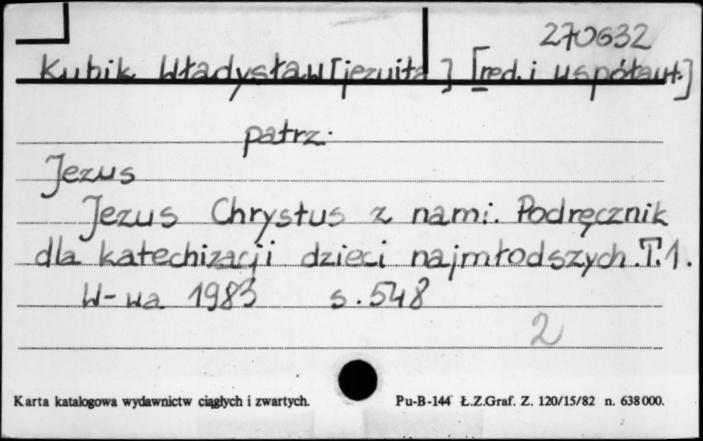 270632
Kubik Władysław [jezuita] [red. i współaut.]
patrz:
Jezus
Jezus Chrystus z nami. Podręcznik
dla katechizacji dzieci najmłodszych. T. 1.
W-wa 1983 s. 548
2
Karta katalogowa wydawnictw ciągłych i zwartych. Pu-B-144 Ł.Z.Graf. Z. 120/15/82 n. 638000.